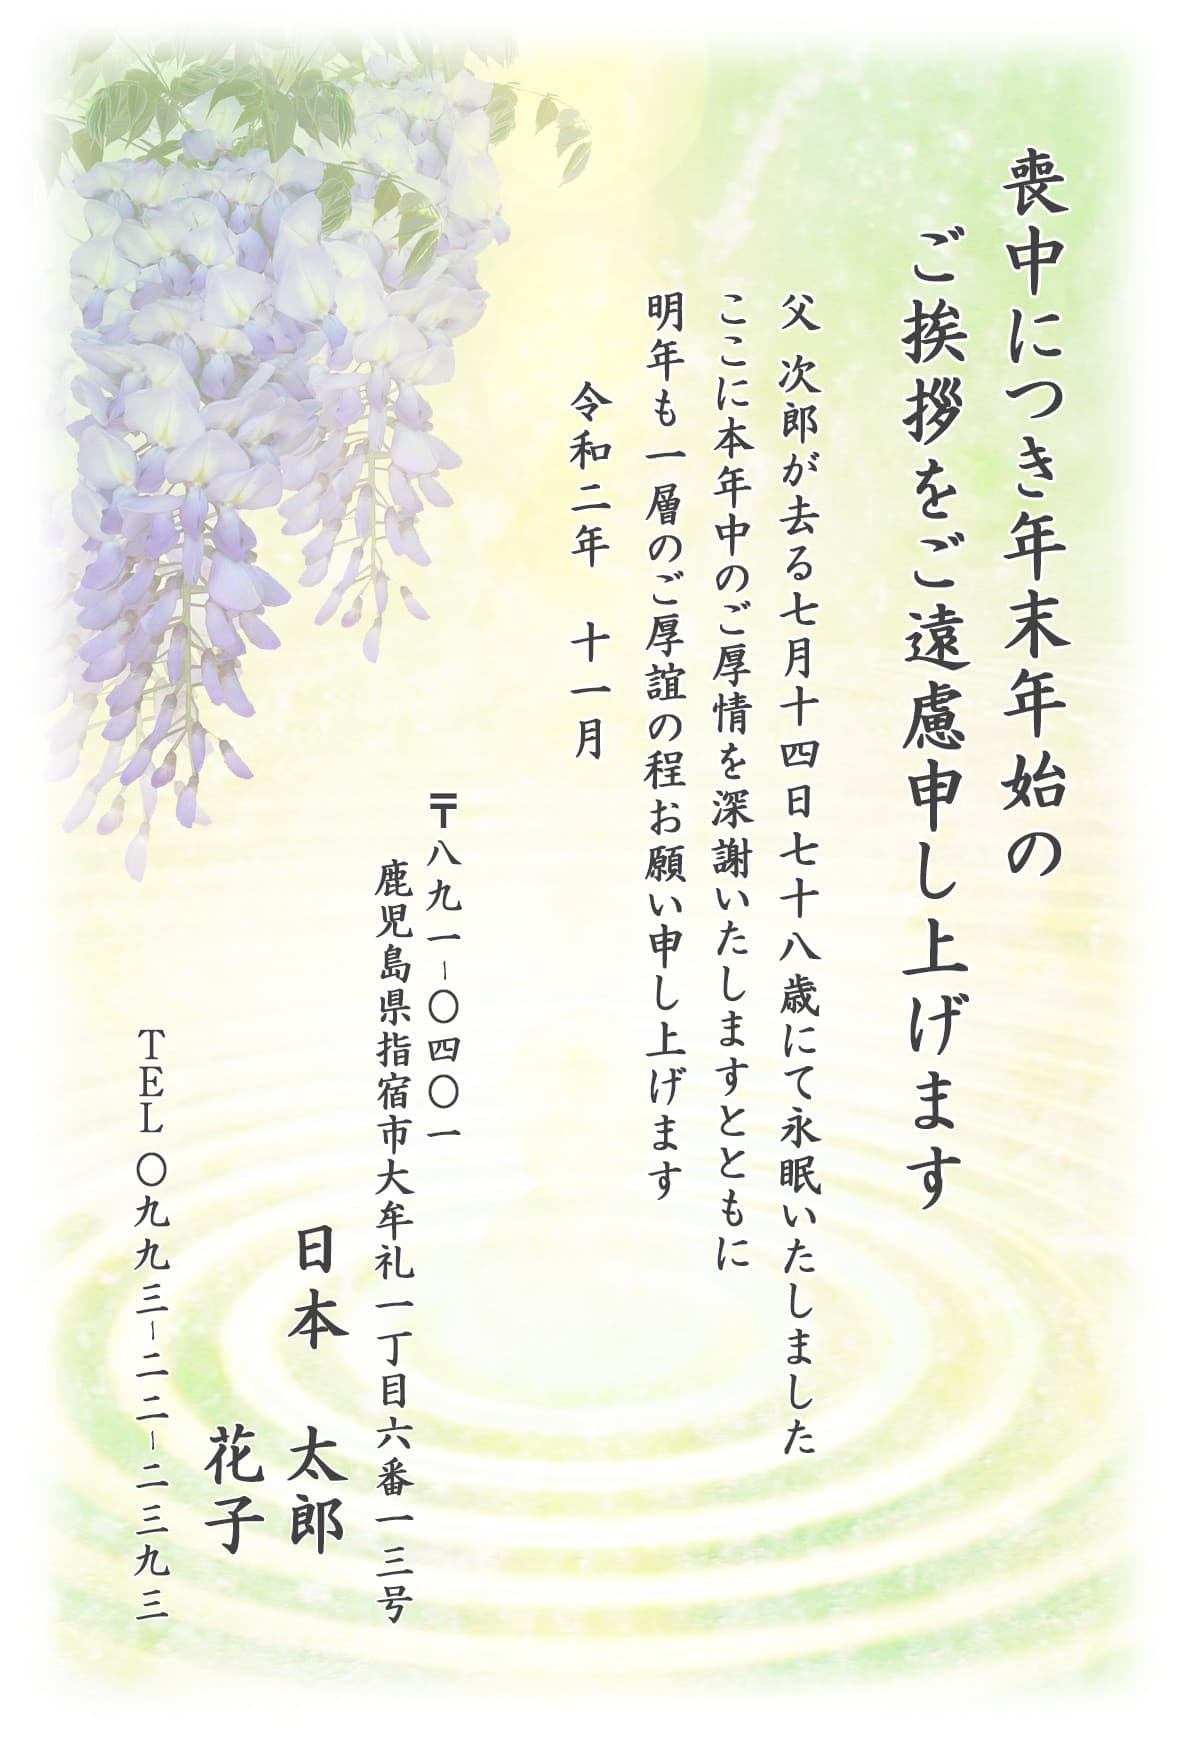 喪中につき年末年始の
ご挨拶をご遠慮申し上げます
父 次郎が去る七月十四日七十八歳にて永眠いたしました
ここに本年中のご厚情を深謝いたしますとともに
明年も一層のご厚誼の程お願い申し上げます
令和二年　十一月
〒八九一-〇四〇一
鹿児島県指宿市大牟礼一丁目六番一三号
日本　太郎
花子
TEL〇九九三-二二-二三九三